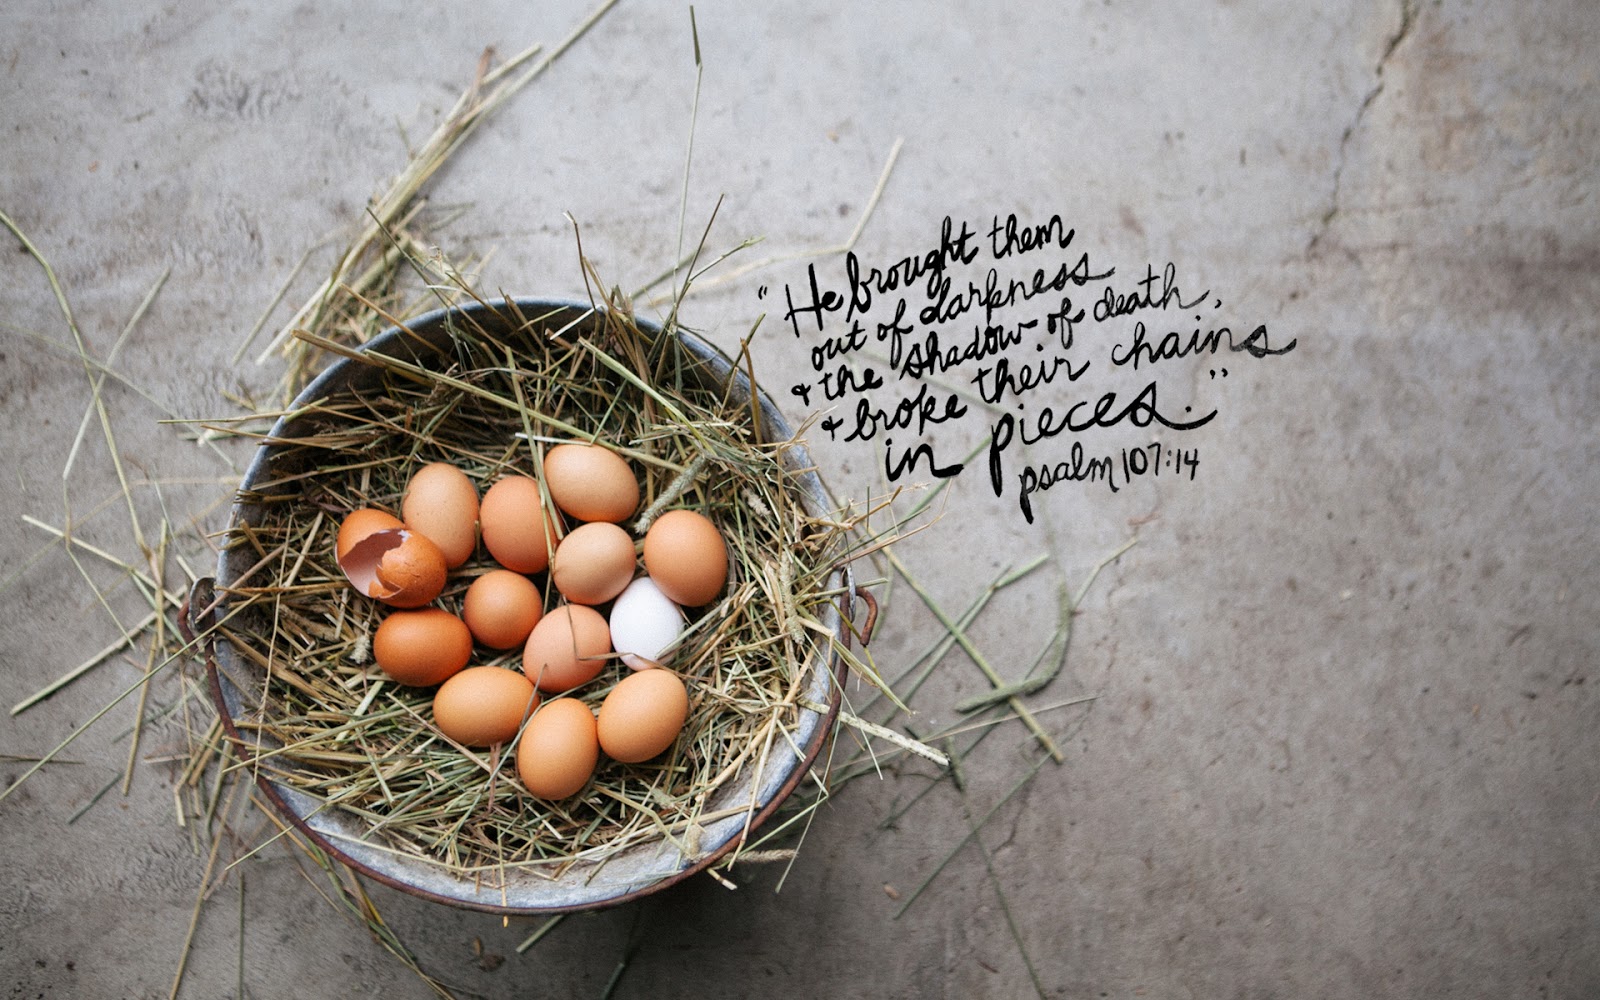 "He brought them
out of darkness
& the shadow of death,
& broke their chains
in pieces."
psalm 107:14